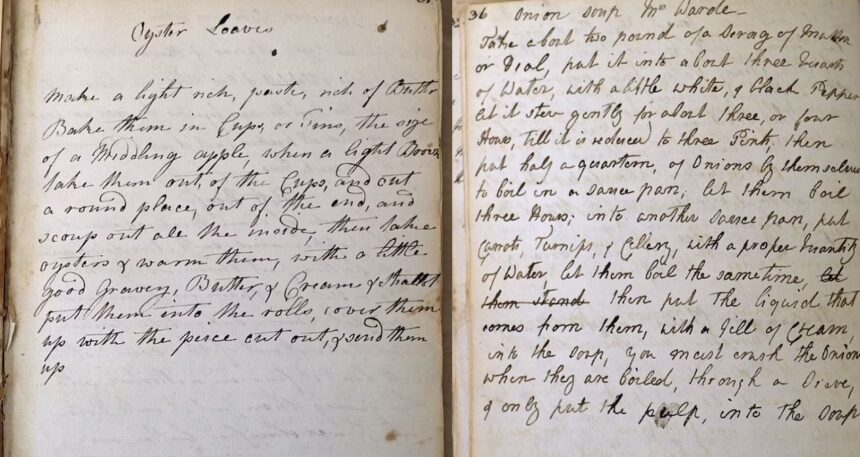 Oyster Loaves
Make a light rich, paste, rich of Butter
Bake them in Cups, or Tins, the size
of a Middling apple, when a light Brown
take them out, of the Cups, and cut
a round place, out of the end, and
scoup out all the inside, then take
oysters & warm them, with a little
good gravey, Butter, & Cream &
put them into the rolls, cover them
up with the peice cut out, & send them
up
36 Onion soup Mrs Warde
Take about two pound of a Scrag of Mutton
or Veal, put it into about three Quarts
of Water, with a little white, & black Pepper
let it stew gently for about three, or four
Hours, till it is reduced to three Pints, then
put half a quartern, of Onions by themselves
to boil in a sauce pan, let them boil
three Hours; into another sauce pan, put
Carrots, Turnips, & Cellery, with a proper Quantity
of Water, let them boil the same time, let
them stand then put the liquid that
comes from them, with a Gill of Cream,
into the soup, You must crush the Onions
when they are boiled, through a Sieve,
& only put the pulp, into the soup